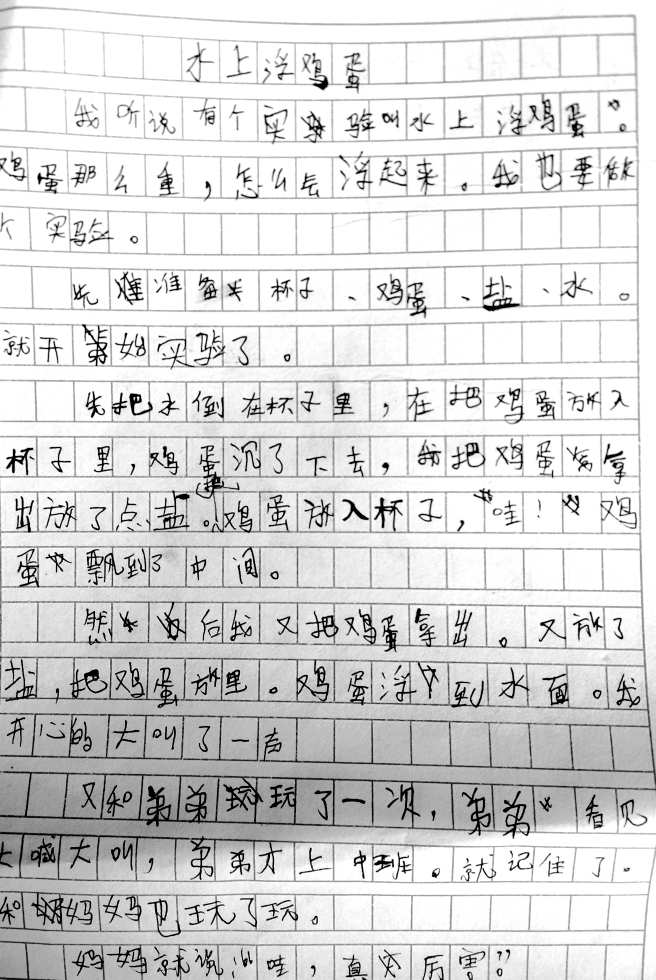 水上浮鸡蛋
我听说有个实验叫水上浮鸡蛋。
鸡蛋那么重，怎么会浮起来。我也要做
个实验。
先准备杯子、鸡蛋、盐、水。
就开始实验了。
先把水倒在杯子里，在把鸡蛋放入
杯子里，鸡蛋沉了下去，我把鸡蛋拿
出放了点盐。鸡蛋放入杯子，“哇！”鸡
蛋飘到了中间。
然后我又把鸡蛋拿出。又放了
盐，把鸡蛋放里。鸡蛋浮到水面。我
开心的大叫了一声
又和弟弟玩了一次，弟弟看见
大喊大叫，弟弟才上中班。就记住了。
和妈妈也玩了玩。
妈妈就说：“哇，真实厉害”